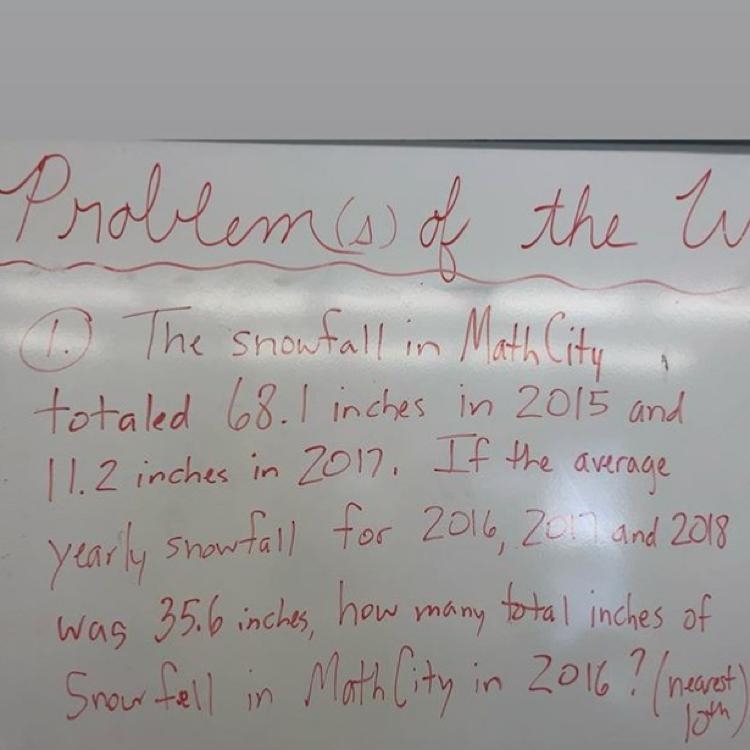 Problem(s) of the W
1. The snowfall in MathCity
totaled 68.1 inches in 2015 and
11.2 inches in 2017. If the average
yearly snowfall for 2016, 2017 and 2018
was 35.6 inches, how many total inches of
Snow fell in MathCity in 2016? (nearest
10th)